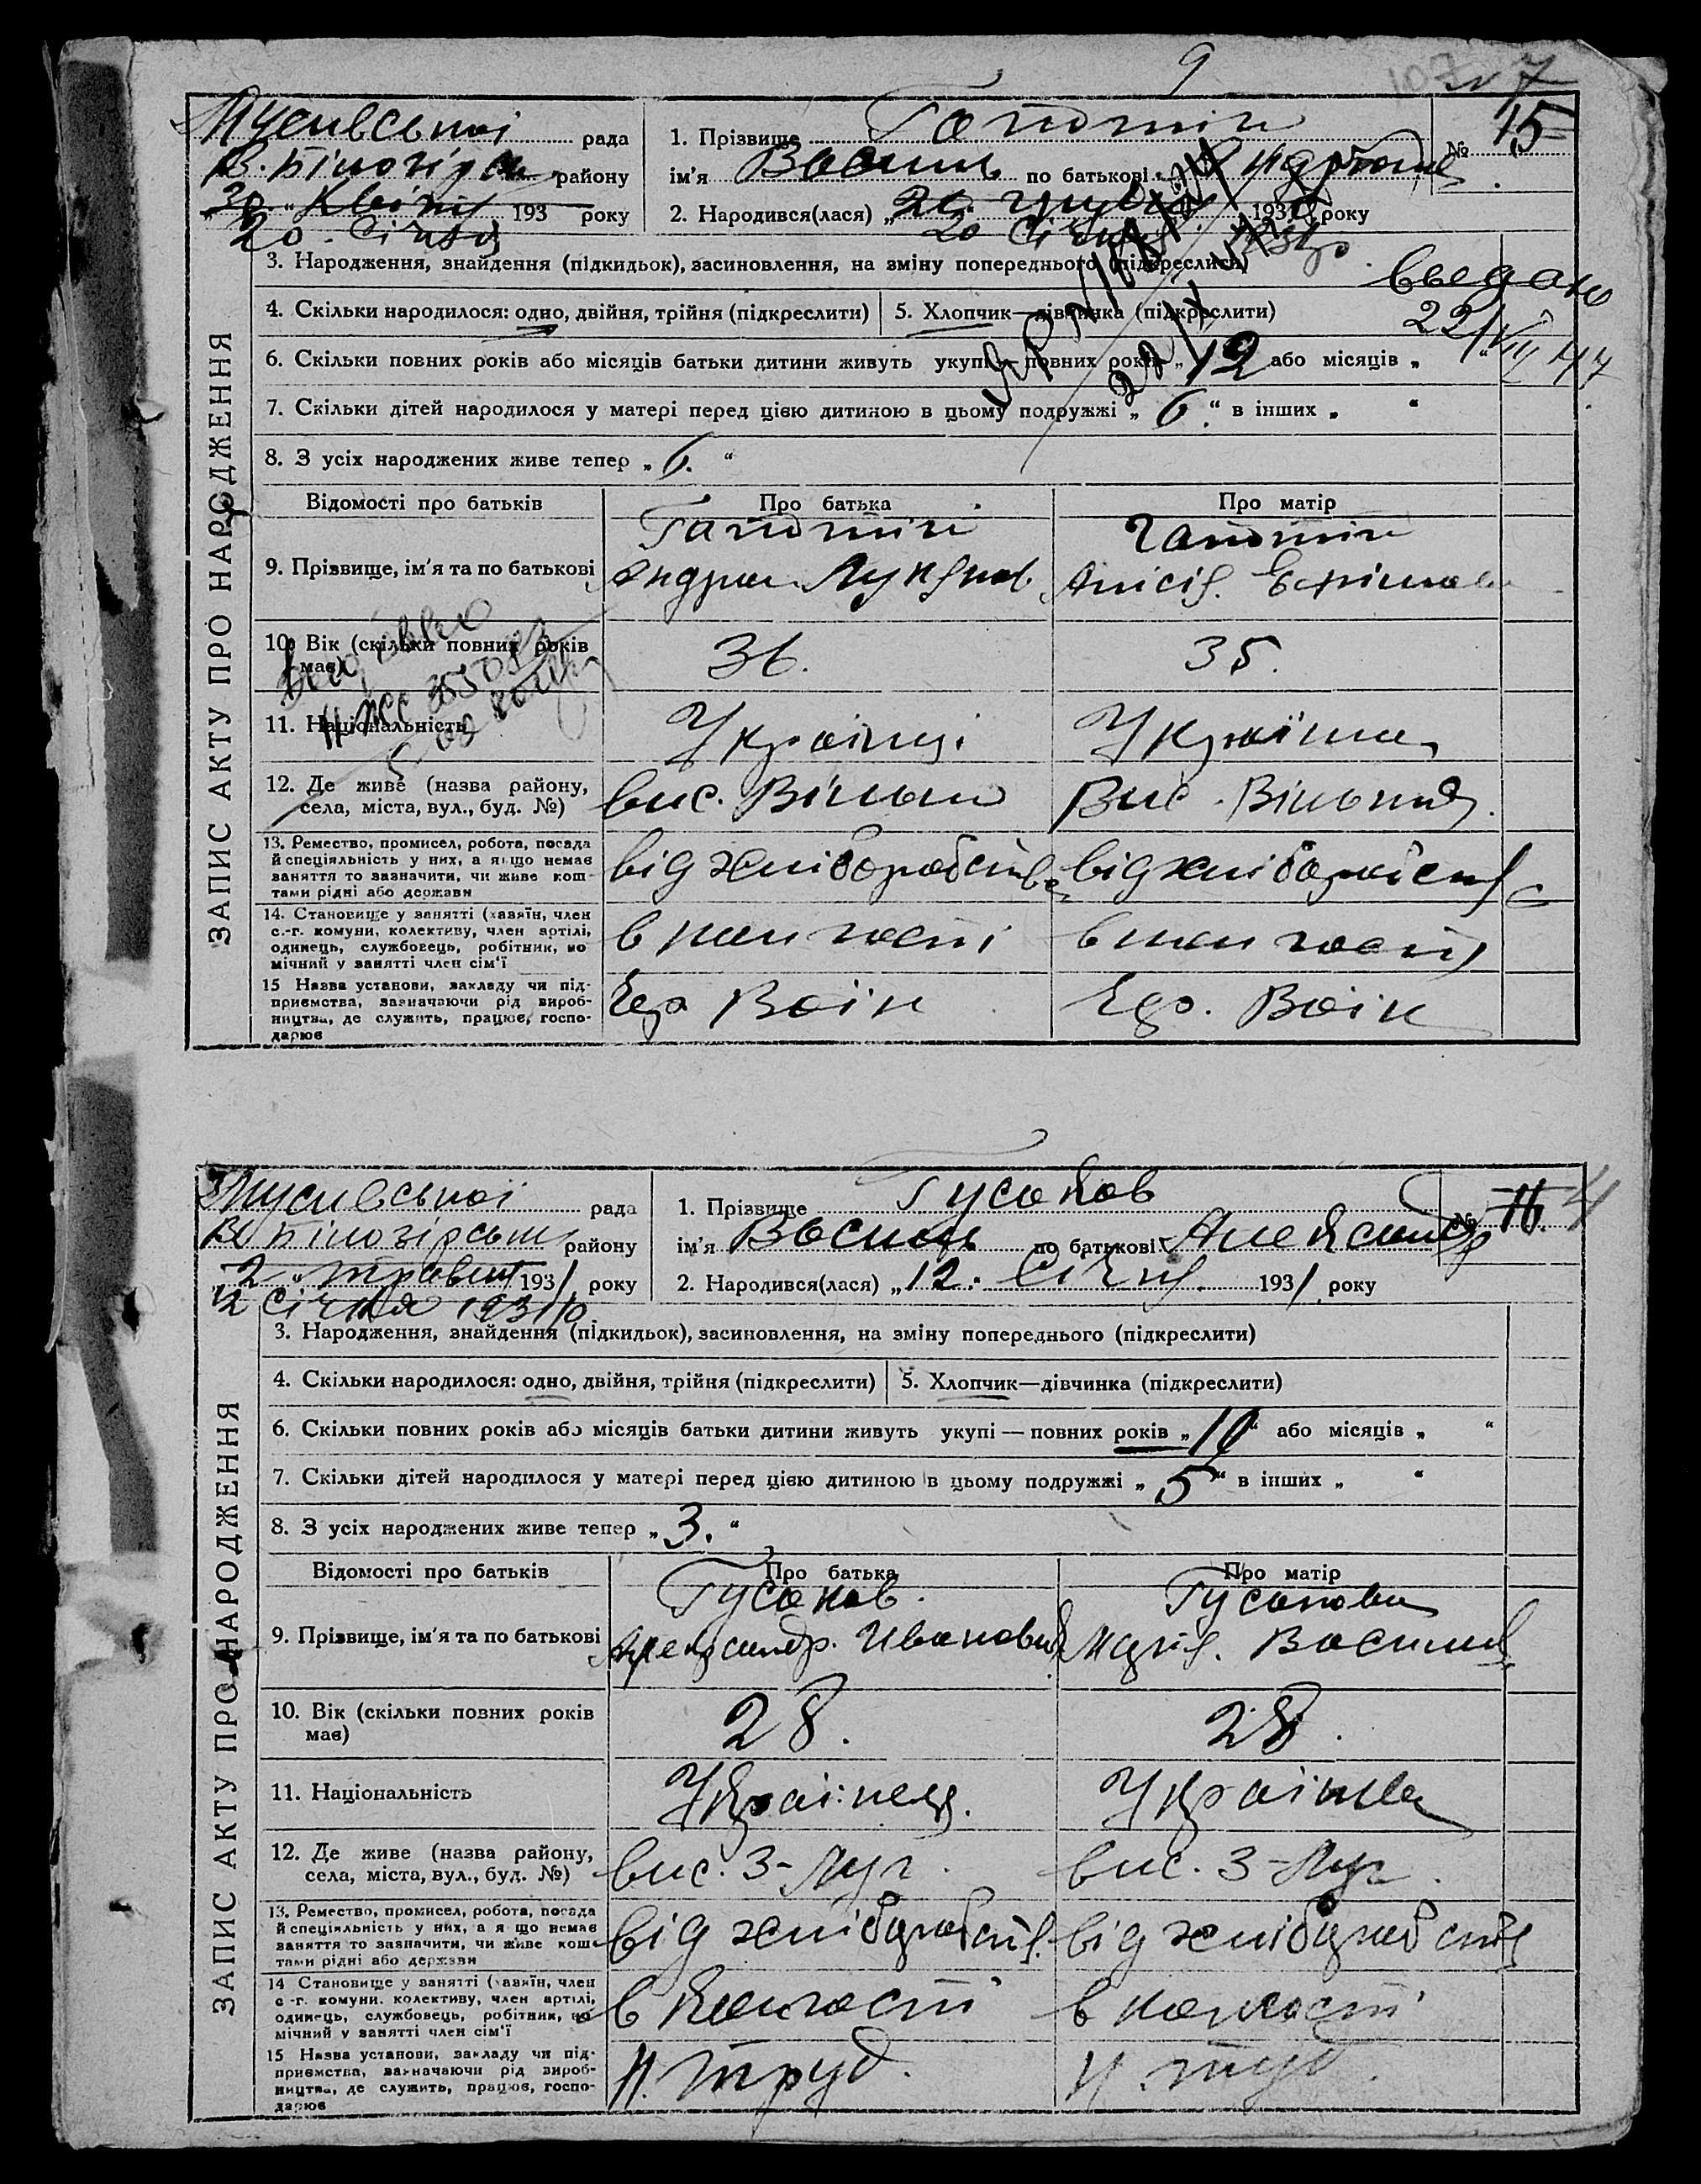 9
107 7
рада
В. Білозірськ району
30 Квітня 193 року
20 Січня
1. Прізвище
ім'я Василь по батькові
№ 15
2. Народився(лася) „20 193 року
20 Січня
3. Народження, знайдення (підкидьок), засиновлення, на зміну попереднього (підкреслити)
4. Скільки народилося: одно, двійня, трійня (підкреслити)
5. Хлопчик—дівчинка (підкреслити)
22/VIII 47
6. Скільки повних років або місяців батьки дитини живуть укупі — повних років „12 або місяців „ “
7. Скільки дітей народилося у матері перед цією дитиною в цьому подружжі „6.“ в інших „ “
8. З усіх народжених живе тепер „6.“
ЗАПИС АКТУ ПРО НАРОДЖЕННЯ
Відомості про батьків
Про батька
Про матір
9. Прізвище, ім'я та по батькові
10. Вік (скільки повних років має)
36.
35.
11. Національність
Українці
Українка
12. Де живе (назва району, села, міста, вул., буд. №)
вис. Вільний
Вис. Вільний
13. Ремество, промисел, робота, посада
й спеціяльність у них, а якщо немає
заняття то зазначити, чи живе кош-
тами рідні або держави
від хліборобства
від хліборобств
14. Становище у занятті (хазяїн, член
с.-г. комуни, колективу, член артілі,
одинець, службовець, робітник, по
мічний у занятті член сім'ї
в колгоспі
в колгоспі
15 Назва установи, закладу чи під-
приємства, зазначаючи рід вироб-
ництва, де служить, працює, госпо-
дарює
Чер Воін
Чер. Воін
рада
В Білозірськ району
2 травня 1931 року
12 Січня 1931 р
1. Прізвище Гусаков
ім'я Василь по батькові Александр
№ 16. 4
2. Народився(лася) „12. Січня 1931 року
3. Народження, знайдення (підкидьок), засиновлення, на зміну попереднього (підкреслити)
4. Скільки народилося: одно, двійня, трійня (підкреслити)
5. Хлопчик—дівчинка (підкреслити)
6. Скільки повних років або місяців батьки дитини живуть укупі — повних років „10“ або місяців „ “
7. Скільки дітей народилося у матері перед цією дитиною в цьому подружжі „5“ в інших „ “
8. З усіх народжених живе тепер „3.“
ЗАПИС АКТУ ПРО НАРОДЖЕННЯ
Відомості про батьків
Про батька
Про матір
9. Прізвище, ім'я та по батькові
Гусаков
Александр. Иванович
Гусакова
Марія. Василів
10. Вік (скільки повних років
має)
28.
28.
11. Національність
Українец.
Українка
12. Де живе (назва району,
села, міста, вул., буд. №)
вис. З-Луг.
вис. З-Луг.
13. Ремество, промисел, робота, посада
й спеціяльність у них, а якщо немає
заняття то зазначити, чи живе кош-
тами рідні або держави
від хліборобств.
від хліборобств
14 Становище у занятті (хазяїн, член
с-г. комуни, колективу, член артілі,
одинець, службовець, робітник, по
мічний у занятті член сім'ї
в колгоспі
в колгоспі
15 Назва установи, закладу чи під-
приємства, зазначаючи рід вироб-
ництва, де служить, працює, госпо-
дарює
Н. труд.
Н. труд.